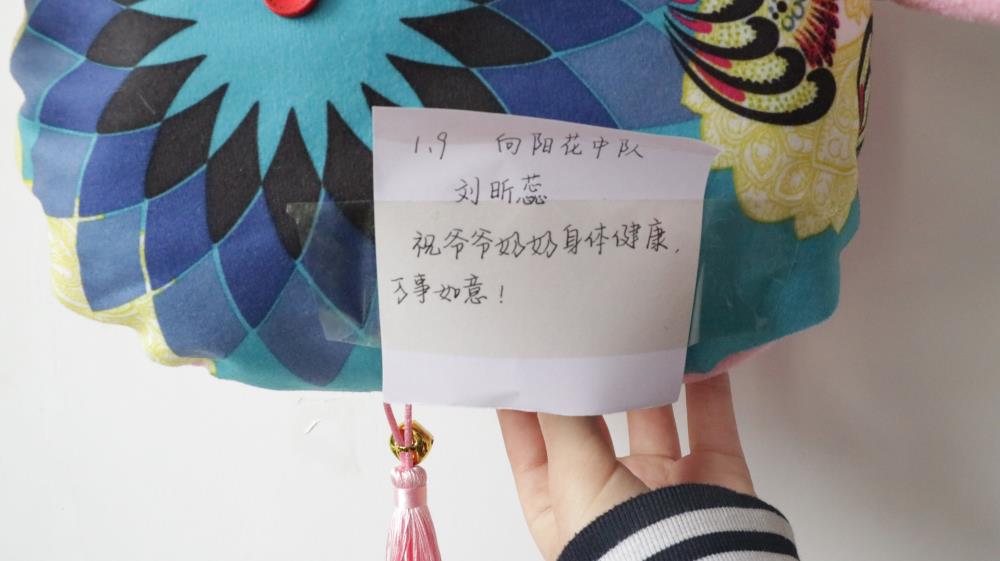 1.9 向阳花中队
刘昕蕊
祝爷爷奶奶身体健康,
万事如意!